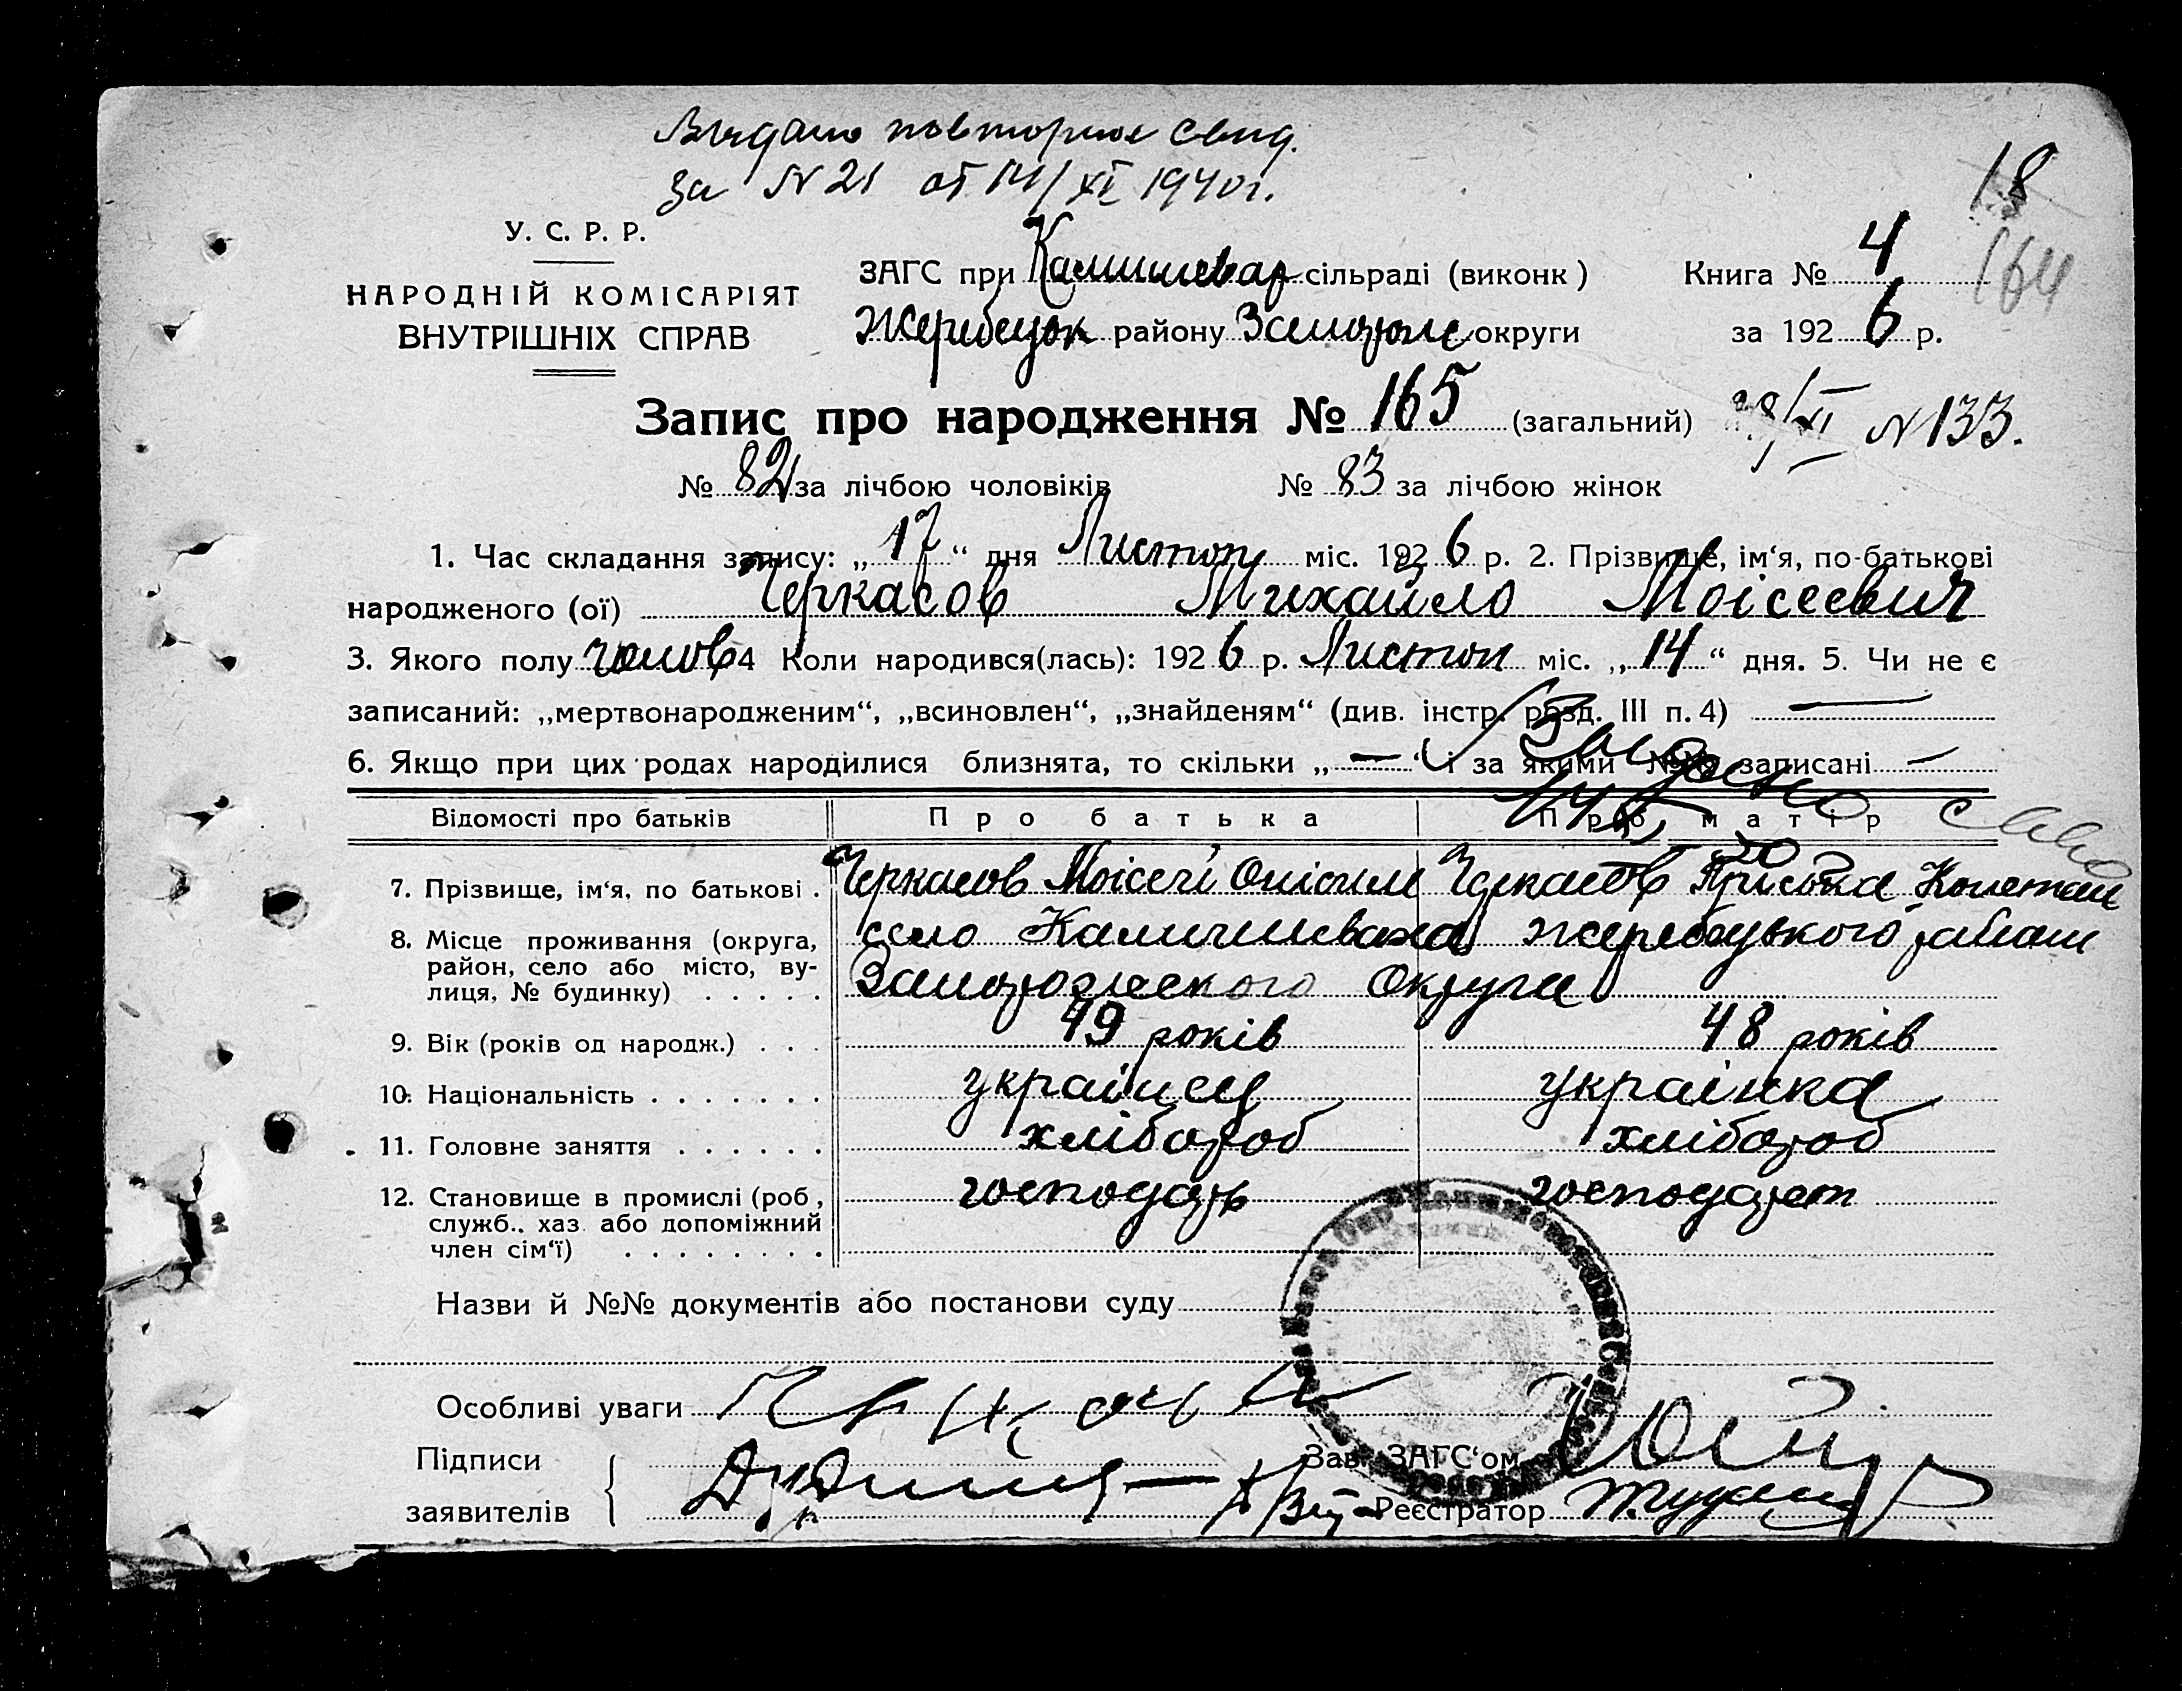 Видано повторное свид.
за N 21 от 14/XI 1940 г.
18
164
У. С. Р. Р.
НАРОДНІЙ КОМІСАРІЯТ
ВНУТРІШНІХ СПРАВ
ЗАГС при Камишевах сільраді (виконк)
Жеребецьк району Запоріж округи
Книга № 4
за 1926 р.
Запис про народження № 165 (загальний)
28/XI N 133.
№ 82 за лічбою чоловіків № 83 за лічбою жінок
1. Час складання запису: „17“ дня Листоп міс. 1926 р. 2. Прізвище, ім‘я, по-батькові
народженого (ої) Черкасов Михайло Моісеєвич
3. Якого полу чолов 4 Коли народився(лась): 1926 р. Листоп міс. „14“ дня. 5. Чи не є
записаний: „мертвонародженим“, „всиновлен“, „знайденям“ (див. інстр. розд. III п. 4) —
6. Якщо при цих родах народилися близнята, то скільки „—“ і за якими №№ записані —
Видано
Відомості про батьків Про батька Про матір
7. Прізвище, ім‘я, по батькові . Черкасов Моісей Черкасов Пріська
8. Місце проживання (округа, село Камишеваха Жеребецького району
район, село або місто, ву-
лиця, № будинку) . . . . . Запорожского Округи
9. Вік (років од народж.) . . . 49 років 48 років
10. Національність . . . . . . . українец українка
11. Головне заняття . . . . . . хлібороб хлібороб
12. Становище в промислі (роб, господарь господарт
служб., хаз. або допоміжний
член сім‘ї) . . . . . . . .
Назви й №№ документів або постанови суду
Особливі уваги
Підписи
заявителів
Зав. ЗАГС‘ом
Реєстратор